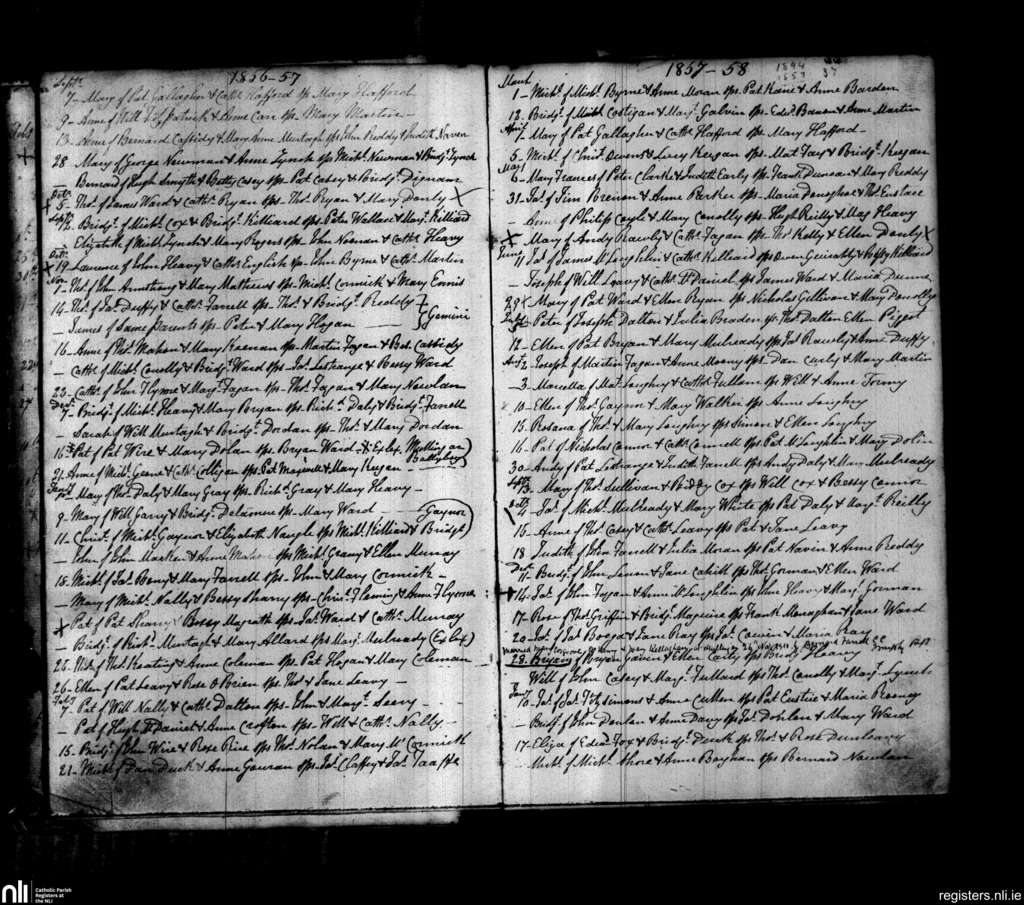 1856-57
Septr
7- Mary of Pat Gallagher & Cathe Hafford sps Mary Hafford
9- Anne of Will Fitzpatrick & Anne Carr sps Mary Martin
13- Anne of Bernard Cassidy & Mary Anne Murtagh sps John Reddy & Judith Naven
28 Mary of George Newman & Anne Lynch sps Michl Newman & Bridgt Lynch
Bernard of Hugh Smyth & Betty Casey sps Pat Casey & Bridgt Dignam
Octr
5- Thos of James Ward & Cathe Ryan sps Thos Ryan & Mary Danly X
Septr
12- Bridgt of Michl Cox & Bridgt Killiard sps Peter Wallace & Margt Killiard
Elizabeth of Michl Lynch & Mary Rogers sps John Noonan & Cathe Heavy
Octr
X 19- Laurence of John Heavy & Cathe English sps John Byrne & Cathe Martin
Nov
1- Thos of John Armstrong & Mary Mathews sps Michl Cormick & Mary Ennis
14- Thos of Jas Duffy & Cathe Farrell sps Thos & Bridgt Reddy
- James of Same Parents sps Peter & Mary Hogan } Gemini
16- Anne of Thos Mahon & Mary Keenan sps Martin Fagan & Bdt Cassidy
- Cathe of Michl Conolly & Bridgt Ward sps Jos Lestrange & Bessy Ward
23- Cathe of John Flynne & Margt Fagan sps Thos Fagan & Mary Nowlan
Decr
7- Bridgt of Michl Heavy & Mary Bryan sps Richd Daly & Bridgt Farrell
- Sarah of Will Murtagh & Bridgt Dordan sps Thos & Mary Dordan
16 Pat of Pat Wire & Mary Dolan sps Bryan Ward Ex Mullingar
21- Anne of Michl & Cathe Colligan sps Pat Maxwell & Mary Keegan Ballyboy
Jany
Mary of Thos Daly & Mary Gray sps Richd Gray & Mary Heavy -
9- Mary of Will Garry & Bridgt Delamere sps Mary Ward
11- Christr of Michl Gaynor & Elizabeth Naugle sps Michl Killiard & Bridgt Gaynor
- John of John Macken & Anne sps Michl Geany & Ellen Murray
18. Michl of Jas & Mary Farrell sps John & Mary Cormick -
- Mary of Michl Nally & Bessy sps Christr Fleming & Anne Flynne
X Pat of Pat & Bessy Magrath sps Jas Ward & Cathe Murray
- Bridgt of Richd Murtagh & Mary Allard sps Margt Mulready
25- Nichs of Thos Keating & Anne Coleman sps Pat Hogan & Mary Coleman
26- Ellen of Pat Leavy & Rose O Brien sps Thos & Jane Leavy -
Feby
7 Pat of Will Nally & Cathe Dalton sps John & Margt Seery -
- Pat of Hugh McDaniel & Anne Crofton sps Will & Cathe Nally -
15. Bridgt of John Wire & Rose Rire sps Thos Nolan & Mary McCormick
21- Michl of Dan Duck & Anne Gouran sps Jas Claffey & Jas Taaffe
1857-58
March
1- Michl of Michl Byrne & Anne Moran sps Pat Kaine & Anne Barden
12. Bridgt of Michl Costigan & Margt Galvin sps Edwd & Anne Martin
April
1. Mary of Pat Gallagher & Cathe Hafford sps Mary Hafford -
5- Michl of Christ Owens & Lucy Keegan sps Mat Fay & Bridgt Keegan
May
6- Mary Frances of Peter Clarke & Judith Early sps Frank Duncan & Mary Reddy
31. Jas of Tim Brenan & Anne Parker sps Maria Donoghoe & Thos Eustace
- Anne of Philip Coyle & Mary Conolly sps Hugh Reilly & Mary Heavy
X Mary of Andy Rawly & Cathe Fagan sps Thos Kelly & Ellen Danly X
June
11 Jas of James McLoughlin & Cathe Killiard sps Owen & Killiard
Joseph of Will Leavy & Cathe McDaniel sps James Ward & Maria Dunne
29 X Mary of Pat Ward & Ellen Ryan sps Nicholas Gillivan & Mary Donolly
July
Peter of Joseph Dalton & Julia Braden sps Thos Dalton Ellen Piggot
12- Ellen of Pat Bryan & Mary Mulready sps Jas Rawly & Anne Duffy
Augt
2- Joseph of Martin Fagan & Anne Moony sps Dan Curly & Mary Martin
- 3- Marcella of Mat Loughry & Cathe Fullam sps Will & Anne Tormy
10- Ellen of Thos Gaynor & Mary Walker sps Anne Loughry
15. Rosana of Thos & Mary Loughry sps Simon & Ellen Loughry
16- Pat of Nicholas Connor & Cathe Connell sps Pat McLoughlin & Mary Dolin
30- Andy of Pat Lestrange & Judith Farrell sps Andy Daly & Mary Mulready
Septr
13. Mary of Thos Sullivan & Biddy Cox sps Will Cox & Bessy Connor
Octr
4- Jas of Michl Mulready & Mary White sps Pat Daly & Margt Reilly
15- Anne of Thos Casey & Cathe Leavy sps Pat & Jane Leavy
18 Judith of John Farrell & Julia Moran sps Pat Navin & Anne Reddy
Decr
11- Bridgt of John & Jane Cahill sps Thos Gorman & Ellen Ward
14. Jas of John Fagan & Anne McLoughlin sps John Heavy & Margt Gorman
17- Rose of Thos Griffin & Bridgt Maguire sps Frank Monaghan & Jane Ward
20- Jas of Jas & Jane Ray sps Jas & Maria Ray
28. Bryan of Bryan Gaven & Ellen Carty sps Bridgt Heavy
Will of John Casey & Margt Fullard sps Thos Conolly & Margt Lynch
Jany
10- Jas of Jas Fitzsimons & Anne Cullen sps Pat Eustice & Maria Rooney
- Bridt of John Donlan & Anne Davy sps Jas Donlan & Mary Ward
17- Eliza of Edwd Fox & Bridgt Duck sps Thos & Rose Dunleavy
Michl of Michl Shore & Anne Boyhan sps Bernard Nowlan
nli
Catholic Parish
Registers at
the NLI
registers.nli.ie